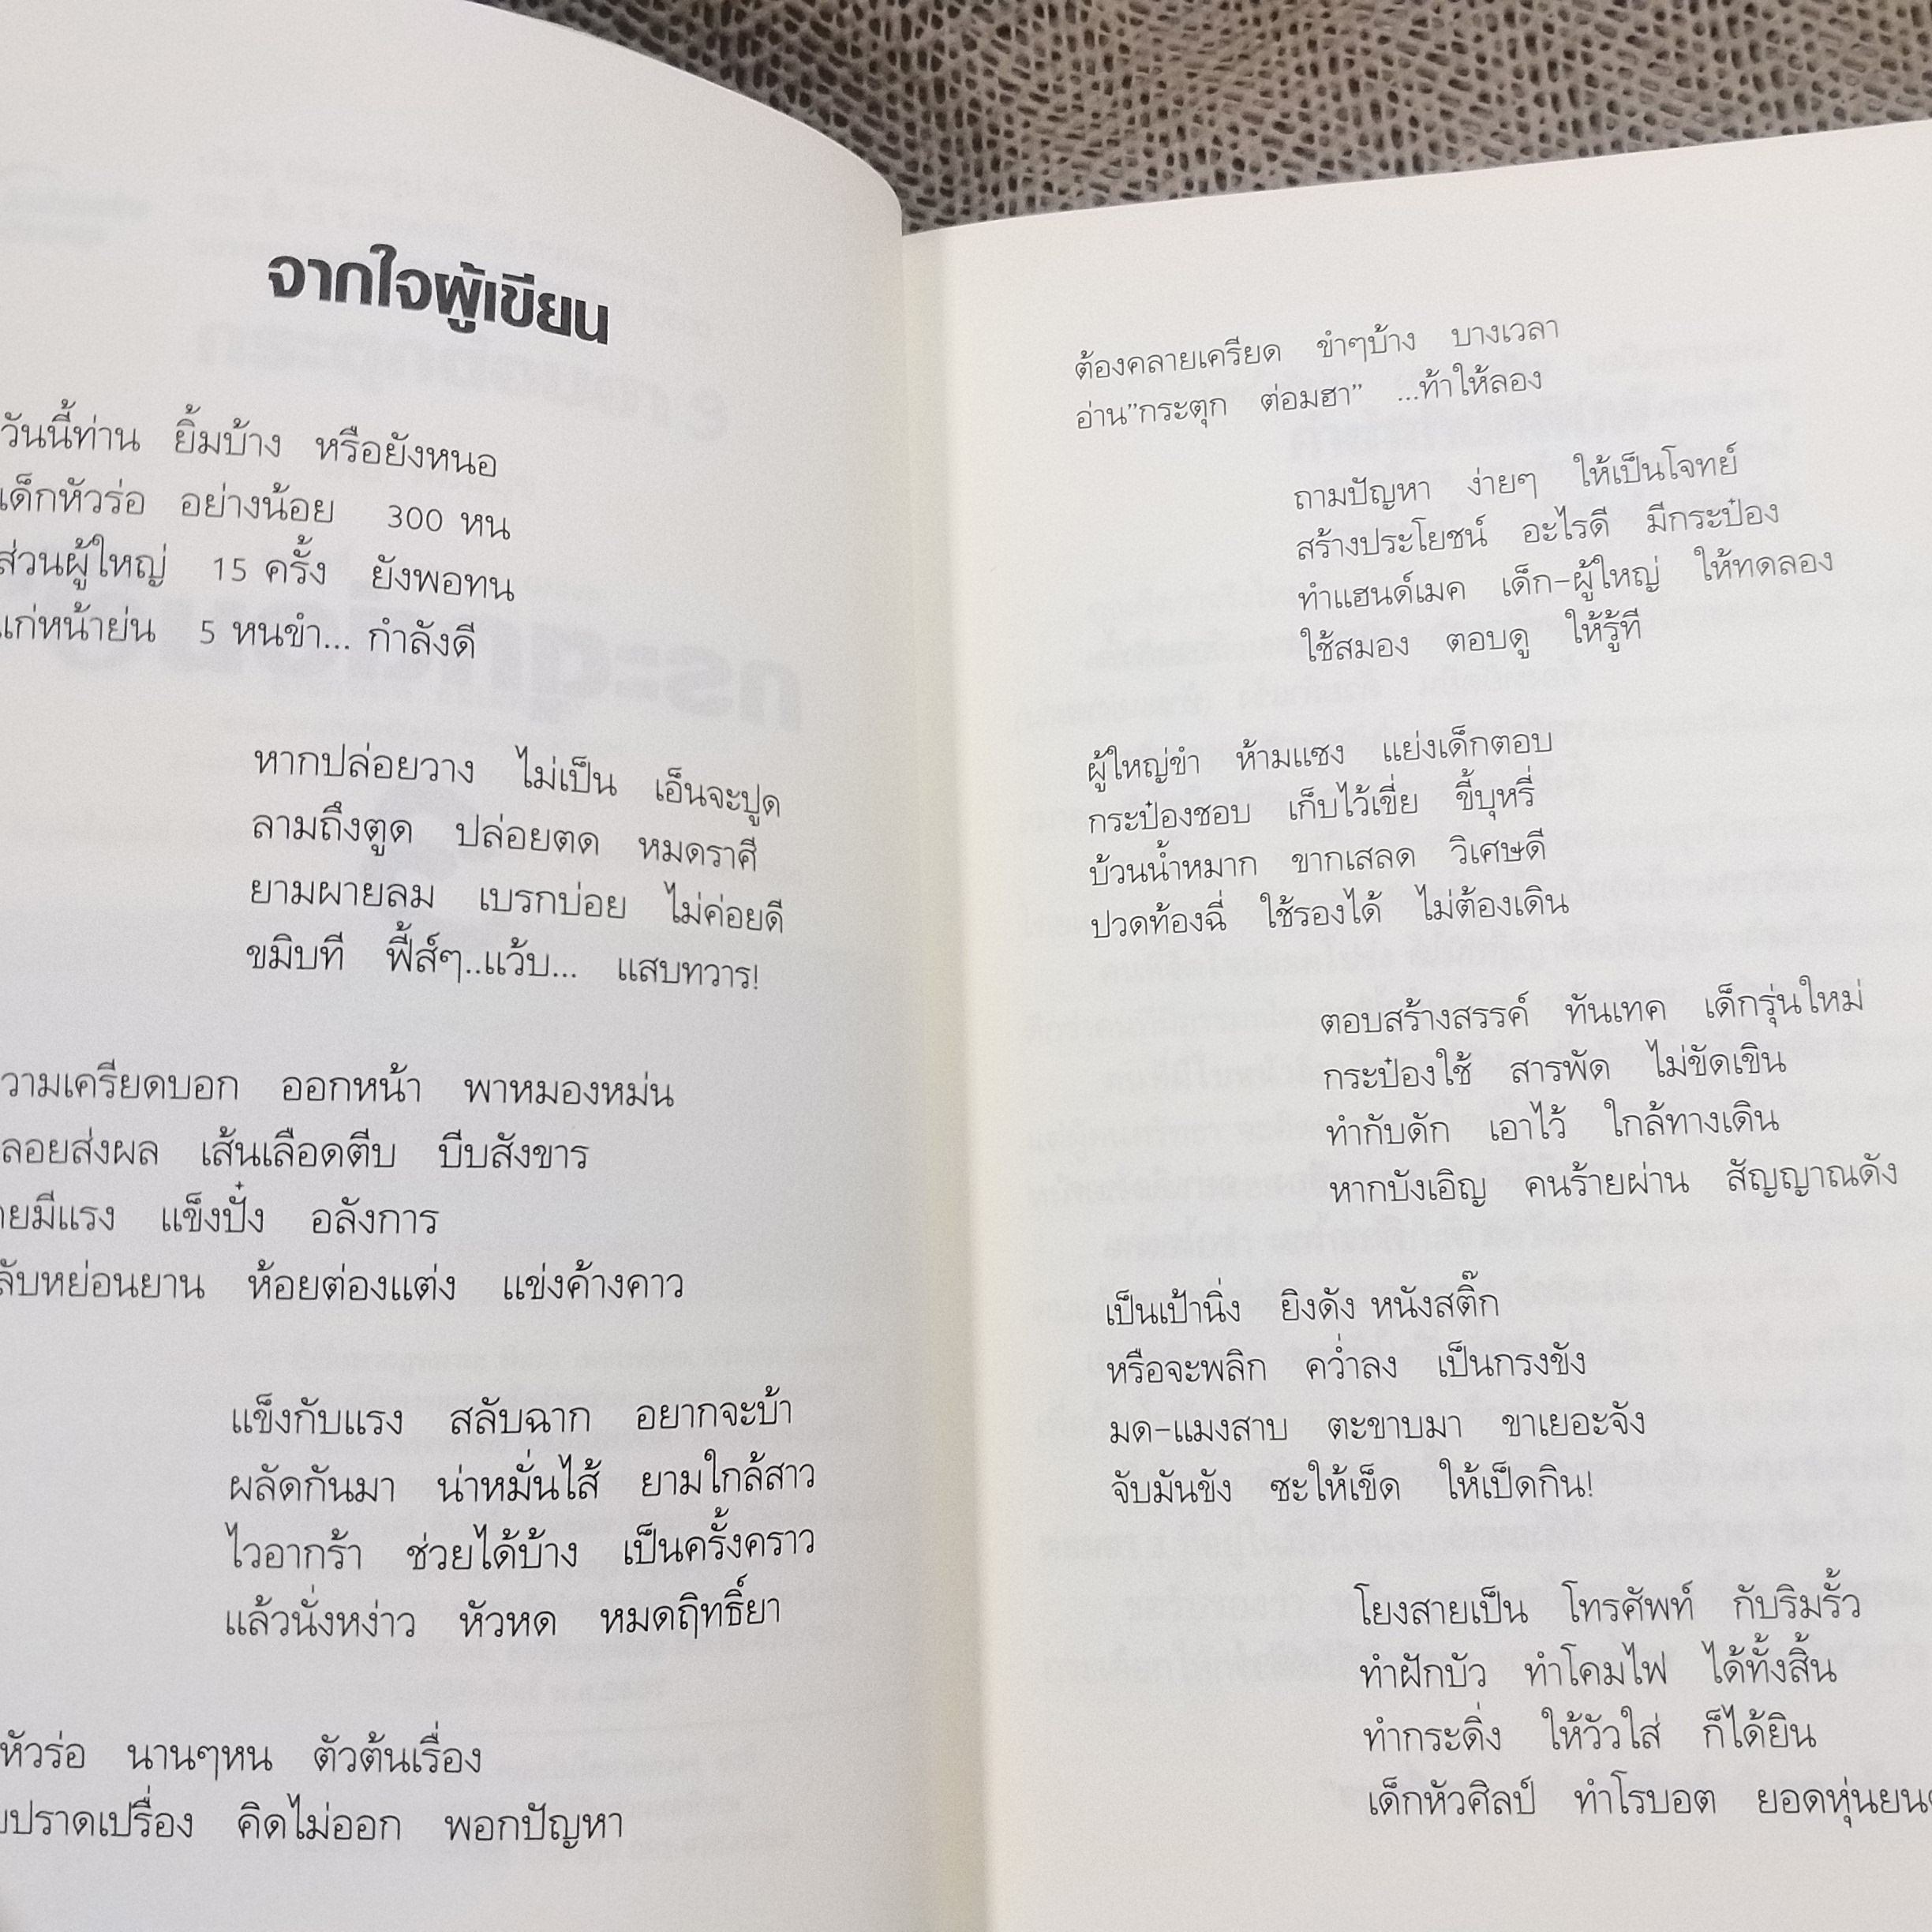 จากใจผู้เขียน
วันนี้ท่าน ยิ้มบ้าง หรือยังหนอ
เด็กหัวร่อ อย่างน้อย 300 หน
ส่วนผู้ใหญ่ 15 ครั้ง ยังพอทน
แก่หน้าย่น 5 หนขำ... กำลังดี
หากปล่อยวาง ไม่เป็น เอ็นจะปูด
ลามถึงตูด ปล่อยตด หมดราศี
ยามผายลม เบรกบ่อย ไม่ค่อยดี
ขมิบที ฟี้ส์ๆ..แว้บ... แสบทวาร!
วามเครียดบอก ออกหน้า พาหมองหม่น
ลอยส่งผล เส้นเลือดตีบ บีบสังขาร
ยมีแรง แข็งปั๋ง อลังการ
ลับหย่อนยาน ห้อยต่องแต่ง แข่งค้างคาว
แข็งกับแรง สลับฉาก อยากจะบ้า
ผลัดกันมา น่าหมั่นไส้ ยามใกล้สาว
ไวอากร้า ช่วยได้บ้าง เป็นครั้งคราว
แล้วนั่งหง่าว หัวหด หมดฤิทธิ์ยา
หัวร่อ นานๆหน ตัวต้นเรื่อง
ปราดเปรื่อง คิดไม่ออก พอกปัญหา
ต้องคลายเครียด ขำๆบ้าง บางเวลา
อ่าน"กระตุก ต่อมฮา" ...ท้าให้ลอง
ถามปัญหา ง่ายๆ ให้เป็นโจทย์
สร้างประโยชน์ อะไรดี มีกระป๋อง
ทำแฮนด์เมค เด็ก-ผู้ใหญ่ ให้ทดลอง
ใช้สมอง ตอบดู ให้รู้ที
ผู้ใหญ่ขำ ห้ามแซง แย่งเด็กตอบ
กระป๋องชอบ เก็บไว้เขี่ย ขี้บุหรี่
บ้วนน้ำหมาก ขากเสลด วิเศษดี
ปวดท้องฉี่ ใช้รองได้ ไม่ต้องเดิน
ตอบสร้างสรรค์ ทันเทค เด็กรุ่นใหม่
กระป๋องใช้ สารพัด ไม่ขัดเขิน
ทำกับดัก เอาไว้ ใกล้ทางเดิน
หากบังเอิญ คนร้ายผ่าน สัญญาณดัง
เป็นเป้านิ่ง ยิงดัง หนังสติ๊ก
หรือจะพลิก คว่ำลง เป็นกรงขัง
มด-แมงสาบ ตะขาบมา ขาเยอะจัง
จับมันขัง ซะให้เข็ด ให้เป็ดกิน!
โยงสายเป็น โทรศัพท์ กับริมรั้ว
ทำฝักบัว ทำโคมไฟ ได้ทั้งสิ้น
ทำกระดิ่ง ให้วัวใส่ ก็ได้ยิน
เด็กหัวศิลป์ ทำโรบอต ยอดหุ่นยน